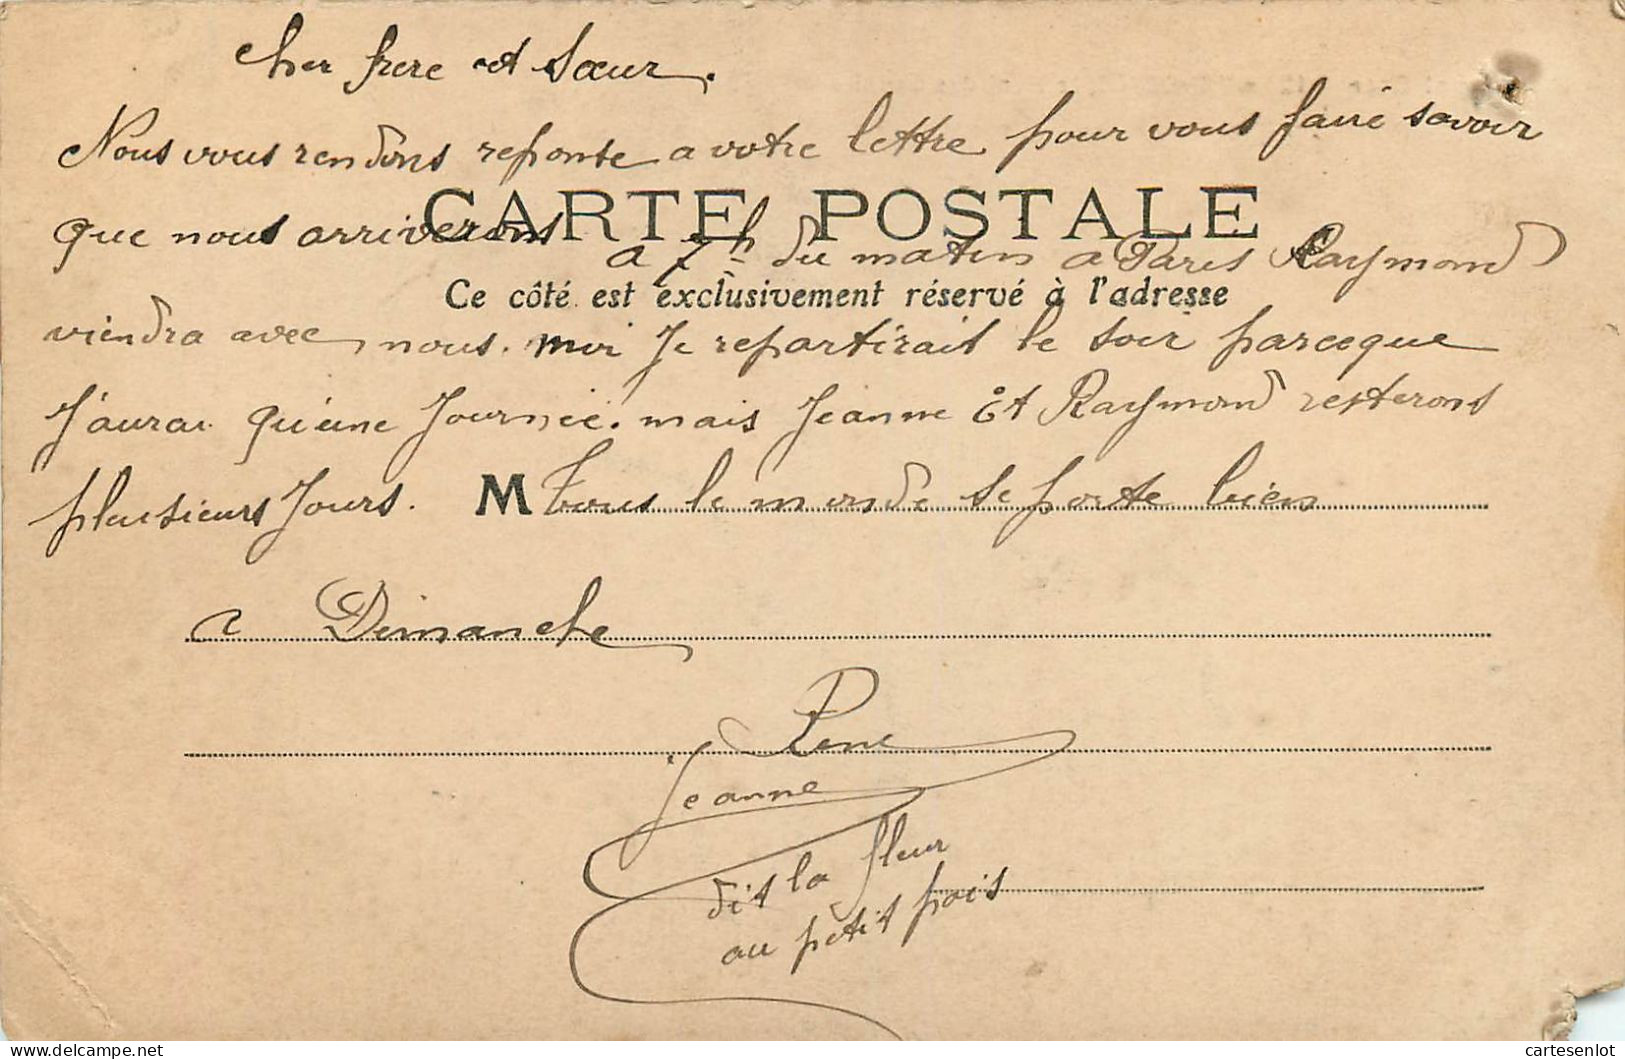 Cher frere et Sœur.
Nous vous rendons reponse a votre lettre pour vous faire savoir
CARTE POSTALE
que nous arriverons a 7h du matin a Paris Raymond
Ce côté est exclusivement réservé à l'adresse
viendra avec nous. moi Je repartirait le soir parceque
J'aurai qu'une Journée. mais Jeanne Et Raymond resterons
plusieurs Jours. M tous le monde se porte bien
a Dimanche
Rene
Jeanne
dit la fleur
au petit pois
cartesenlot